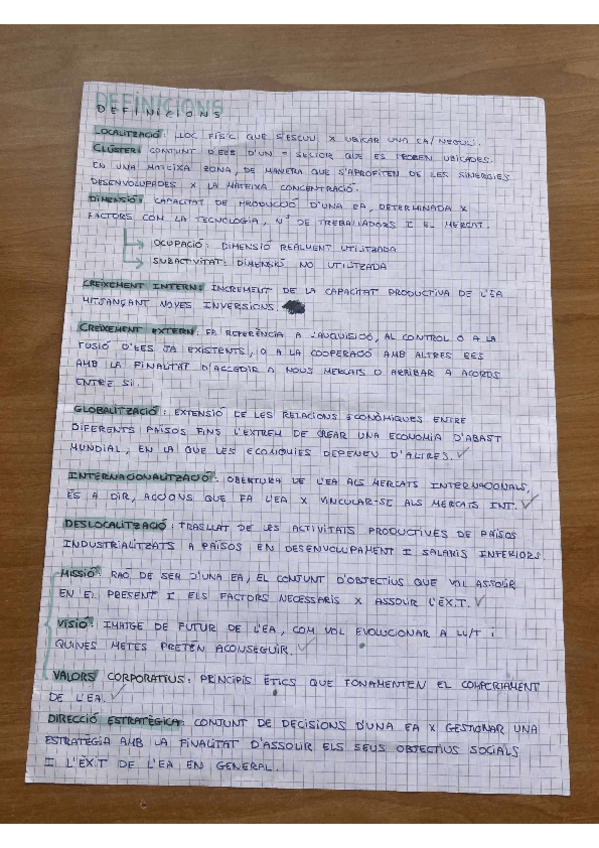 DEFINICIONS
DEFINICIONS
LOCALITZACIÓ: LLOC FÍSIC QUE S'ESCULL X UBICAR UNA EA/NEGOCI.
CLÚSTER: CONJUNT D'EES D'UN = SECTOR QUE ES TROBEN UBICADES.
EN UNA MATEIXA ZONA, DE MANERA QUE S'APROFITEN DE LES SINERGIES
DESENVOLUPADES X LA MATEIXA CONCENTRACIÓ.
DIMENSIÓ: CAPACITAT DE PRODUCCIÓ D'UNA EA, DETERMINADA X
FACTORS COM LA TECNOLOGIA, Nº DE TREBALLADORS I EL MERCAT.
OCUPACIÓ: DIMENSIÓ REALMENT UTILITZADA
SUBACTIVITAT: DIMENSIÓ NO UTILITZADA
CREIXEMENT INTERN: INCREMENT DE LA CAPACITAT PRODUCTIVA DE L'EA
MITJANÇANT NOVES INVERSIONS.
CREIXEMENT EXTERN: FA REFERÈNCIA A L'AUQUISICIÓ, AL CONTROL O A LA
FUSIÓ D'EES JA EXISTENTS, O A LA COOPERACIÓ AMB ALTRES EES
AMB LA FINALITAT D'ACCEDIR A NOUS MERCATS O ARRIBAR A ACORDS
ENTRE SI.
GLOBALITZACIÓ: EXTENSIÓ DE LES RELACIONS ECONÒMIQUES ENTRE
DIFERENTS PAÏSOS FINS L'EXTREM DE CREAR UNA ECONOMIA D'ABAST
MUNDIAL, EN LA QUE LES ECONOMIES DEPENEN D'ALTRES.
INTERNACIONALITZACIÓ: OBERTURA DE L'EA ALS MERCATS INTERNACIONALS,
ÉS A DIR, ACCIONS QUE FA L'EA X VINCULAR-SE ALS MERCATS INT.
DESLOCALITZACIÓ: TRASLLAT DE LES ACTIVITATS PRODUCTIVES DE PAÏSOS
INDUSTRIALITZATS A PAÏSOS EN DESENVOLUPAMENT I SALARIS INFERIORS.
MISSIÓ: RAÓ DE SER D'UNA EA, EL CONJUNT D'OBJECTIUS QUE VOL ASSOLIR
EN EL PRESENT I ELS FACTORS NECESSARIS X ASSOLIR L'ÈXIT.
VISIÓ: IMATGE DE FUTUR DE L'EA, COM VOL EVOLUCIONAR A LL/T I
QUINES METES PRETÉN ACONSEGUIR.
VALORS CORPORATIUS: PRINCIPIS ÈTICS QUE FONAMENTEN EL COMPORTAMENT
DE L'EA.
DIRECCIÓ ESTRATÈGICA: CONJUNT DE DECISIONS D'UNA EA X GESTIONAR UNA
ESTRATÈGIA AMB LA FINALITAT D'ASSOLIR ELS SEUS OBJECTIUS SOCIALS
I L'ÈXIT DE L'EA EN GENERAL.